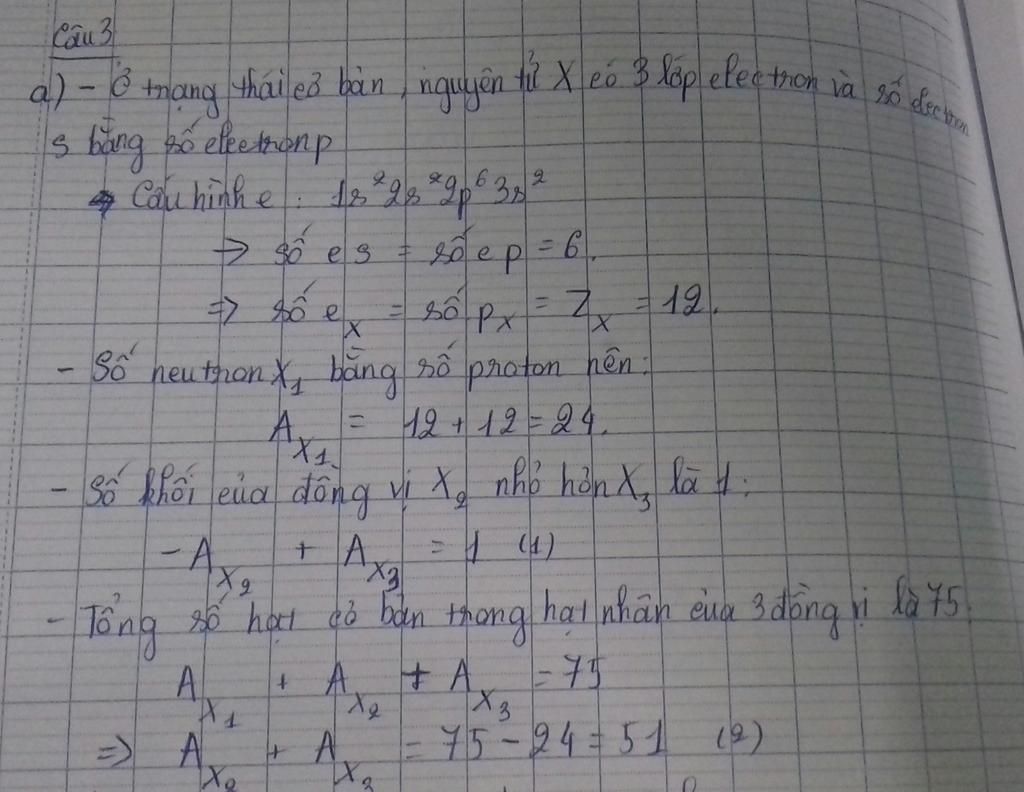 Câu 3
a) - Ở trạng thái cơ bản, nguyên tử X có 3 lớp electron và số electron
s bằng số electron p
Cấu hình e : 1s²2s²2p⁶3s²
→ số e s = số e p = 6.
⇒ số e_X = số p_X = Z_X = 12.
- Số neutron X₁ bằng số proton nên:
A_X₁ = 12 + 12 = 24.
- Số khối của đồng vị X₂ nhỏ hơn X₃ là 1:
-A_X₂ + A_X₃ = 1 (1)
- Tổng số hạt cơ bản trong hạt nhân của 3 đồng vị là 75
A_X₁ + A_X₂ + A_X₃ = 75
⇒ A_X₂ + A_X₃ = 75 - 24 = 51 (2)